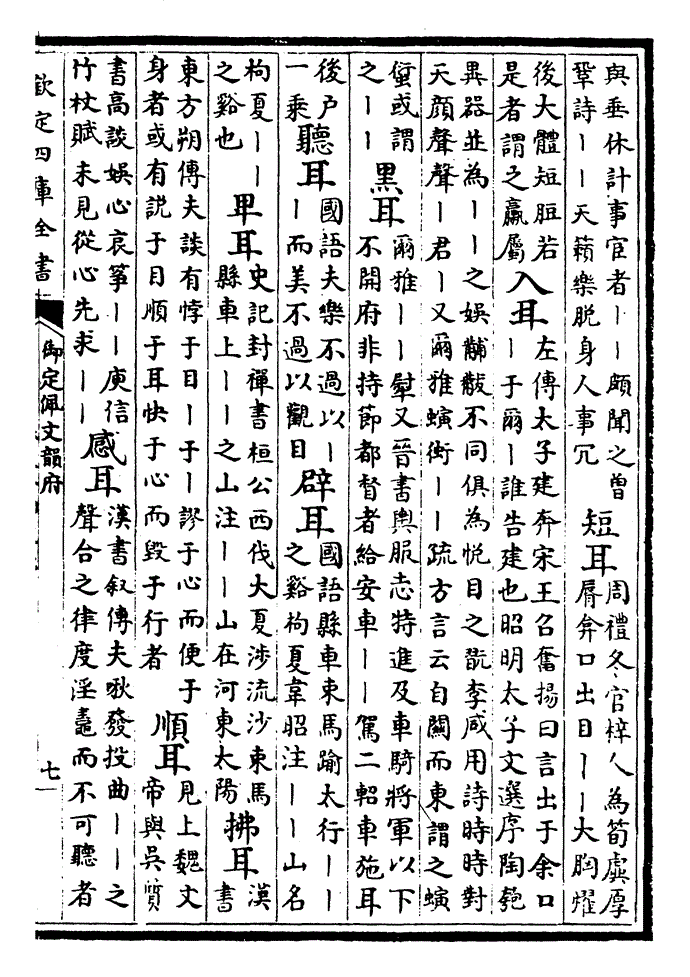 與垂休計事宦者丨丨頗聞之曾
鞏詩丨丨天籟樂脱身人事冗
短耳
周禮冬官梓人為筍虡厚
脣弇口出目丨丨大胸燿
後大體短脰若
是者謂之臝屬
入耳
左傳太子建奔宋王召奮揚曰言出于余口
丨于爾丨誰告建也昭明太子文選序陶匏
異器並為丨丨之娛黼黻不同俱為悦目之翫李咸用詩時時對
天顔聲聲丨君丨又爾雅螾衘丨丨疏方言云自關而東謂之螾
或謂
之丨丨
黑耳
爾雅丨丨犚又晉書輿服志特進及車騎將軍以下
不開府非持節都督者給安車丨丨駕二軺車施耳
後户
一乘
聽耳
國語夫樂不過以丨
丨而美不過以觀目
辟耳
國語縣車束馬踰太行丨丨
之谿拘夏韋昭注丨丨山名
拘夏丨丨
之谿也
卑耳
史記封禪書桓公西伐大夏涉流沙束馬
縣車上丨丨之山注丨丨山在河東太陽
拂耳
漢
書
東方朔傳夫談有悖于目丨于丨謬于心而便于
身者或有説于目順于耳快于心而毀于行者
順耳
見上魏文
帝與吳質
書高談娛心哀箏丨丨庾信
竹杖賦未見從心先求丨丨
感耳
漢書叙傳夫啾發投曲丨丨之
聲合之律度淫䵷而不可聽者
欽定四庫全書
御定佩文韻府
七